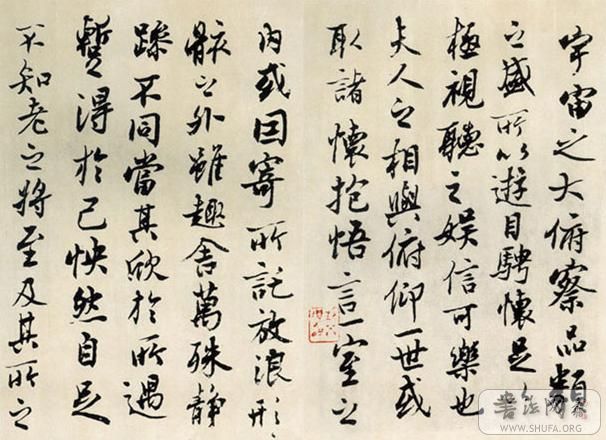 宇宙之大俯察品類
之盛所以遊目騁懷足以
極視聽之娛信可樂也
夫人之相與俯仰一世或
取諸懷抱悟言一室之
內或因寄所託放浪形
骸之外雖趣舍萬殊靜
躁不同當其欣於所遇
暫得於己怏然自足
不知老之將至及其所之
WWW.SHUFA.ORG